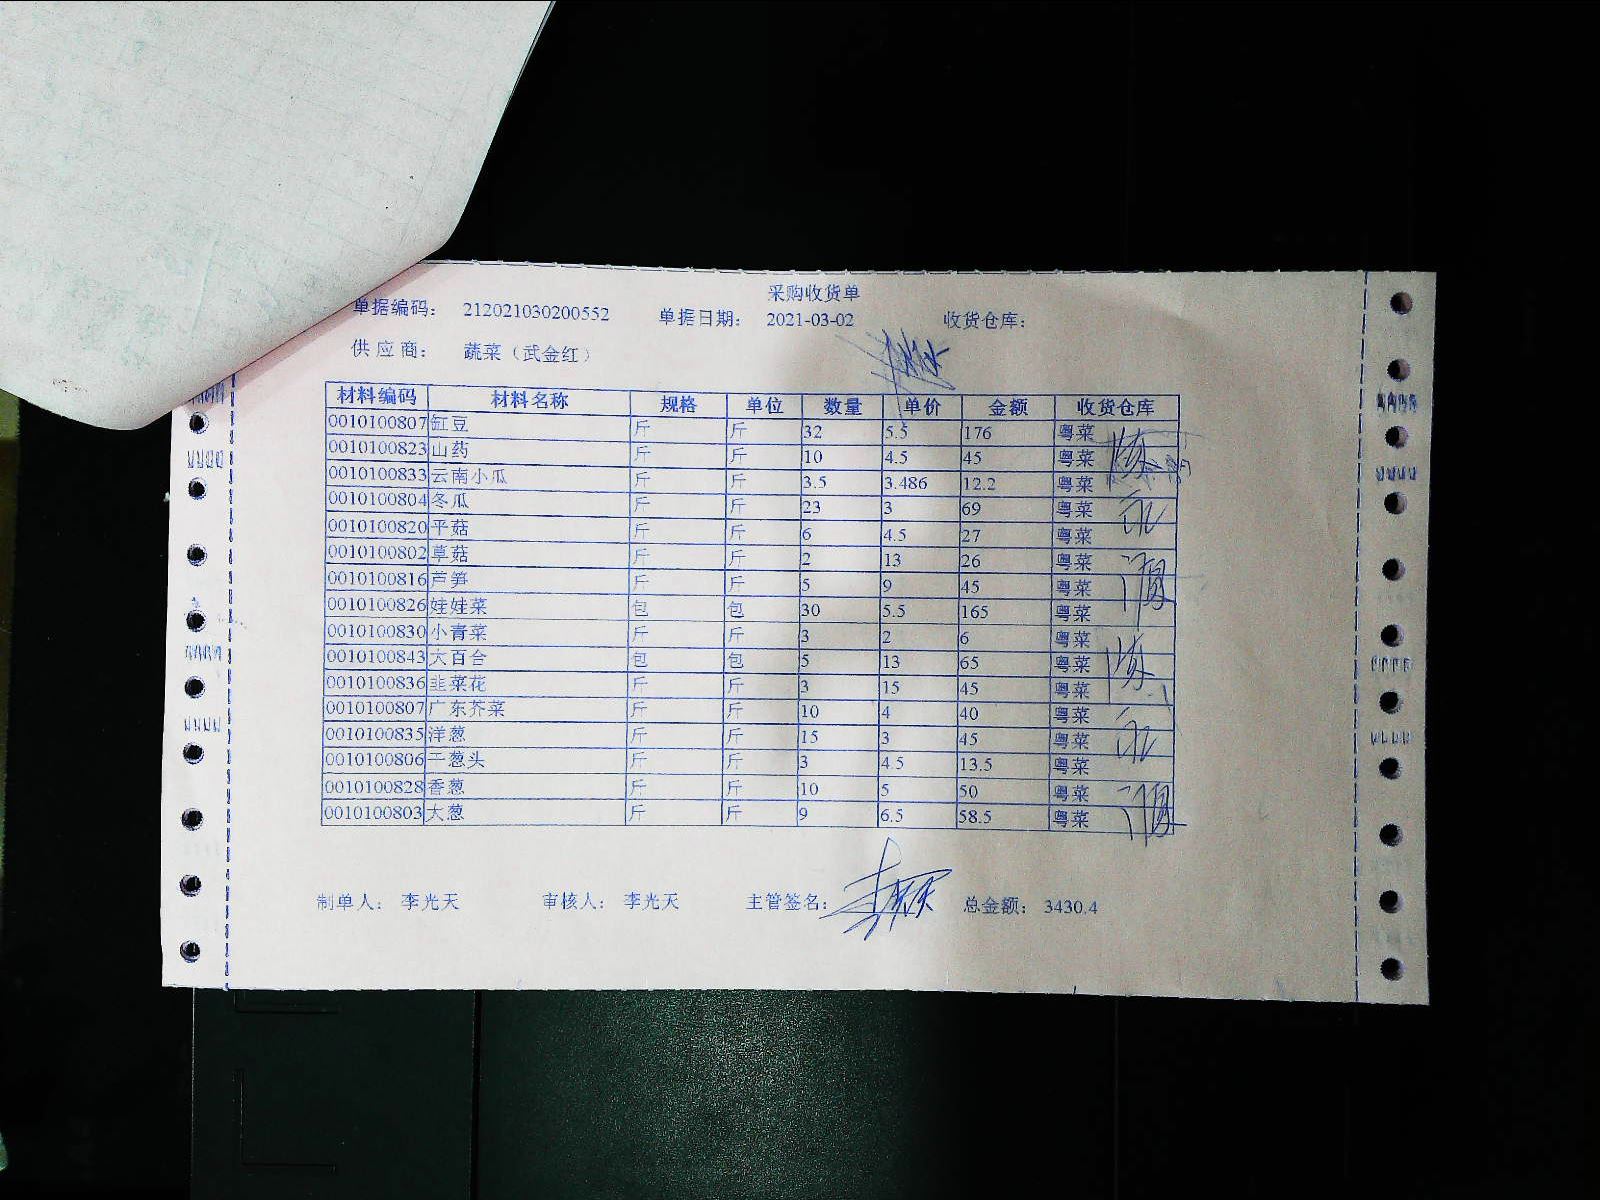 采购收货单
单据编码： 212021030200552 单据日期： 2021-03-02 收货仓库：
供应商： 蔬菜（武金红）
材料编码 材料名称 规格 单位 数量 单价 金额 收货仓库
0010100807 缸豆 斤 斤 32 5.5 176 粤菜
0010100823 山药 斤 斤 10 4.5 45 粤菜
0010100833 云南小瓜 斤 斤 3.5 3.486 12.2 粤菜
0010100804 冬瓜 斤 斤 23 3 69 粤菜
0010100820 平菇 斤 斤 6 4.5 27 粤菜
0010100802 草菇 斤 斤 2 13 26 粤菜
0010100816 芦笋 斤 斤 5 9 45 粤菜
0010100826 娃娃菜 包 包 30 5.5 165 粤菜
0010100830 小青菜 斤 斤 3 2 6 粤菜
0010100843 大百合 包 包 5 13 65 粤菜
0010100836 韭菜花 斤 斤 3 15 45 粤菜
0010100807 广东芥菜 斤 斤 10 4 40 粤菜
0010100835 洋葱 斤 斤 15 3 45 粤菜
0010100806 干葱头 斤 斤 3 4.5 13.5 粤菜
0010100828 香葱 斤 斤 10 5 50 粤菜
0010100803 大葱 斤 斤 9 6.5 58.5 粤菜
制单人： 李光天 审核人： 李光天 主管签名： 总金额： 3430.4